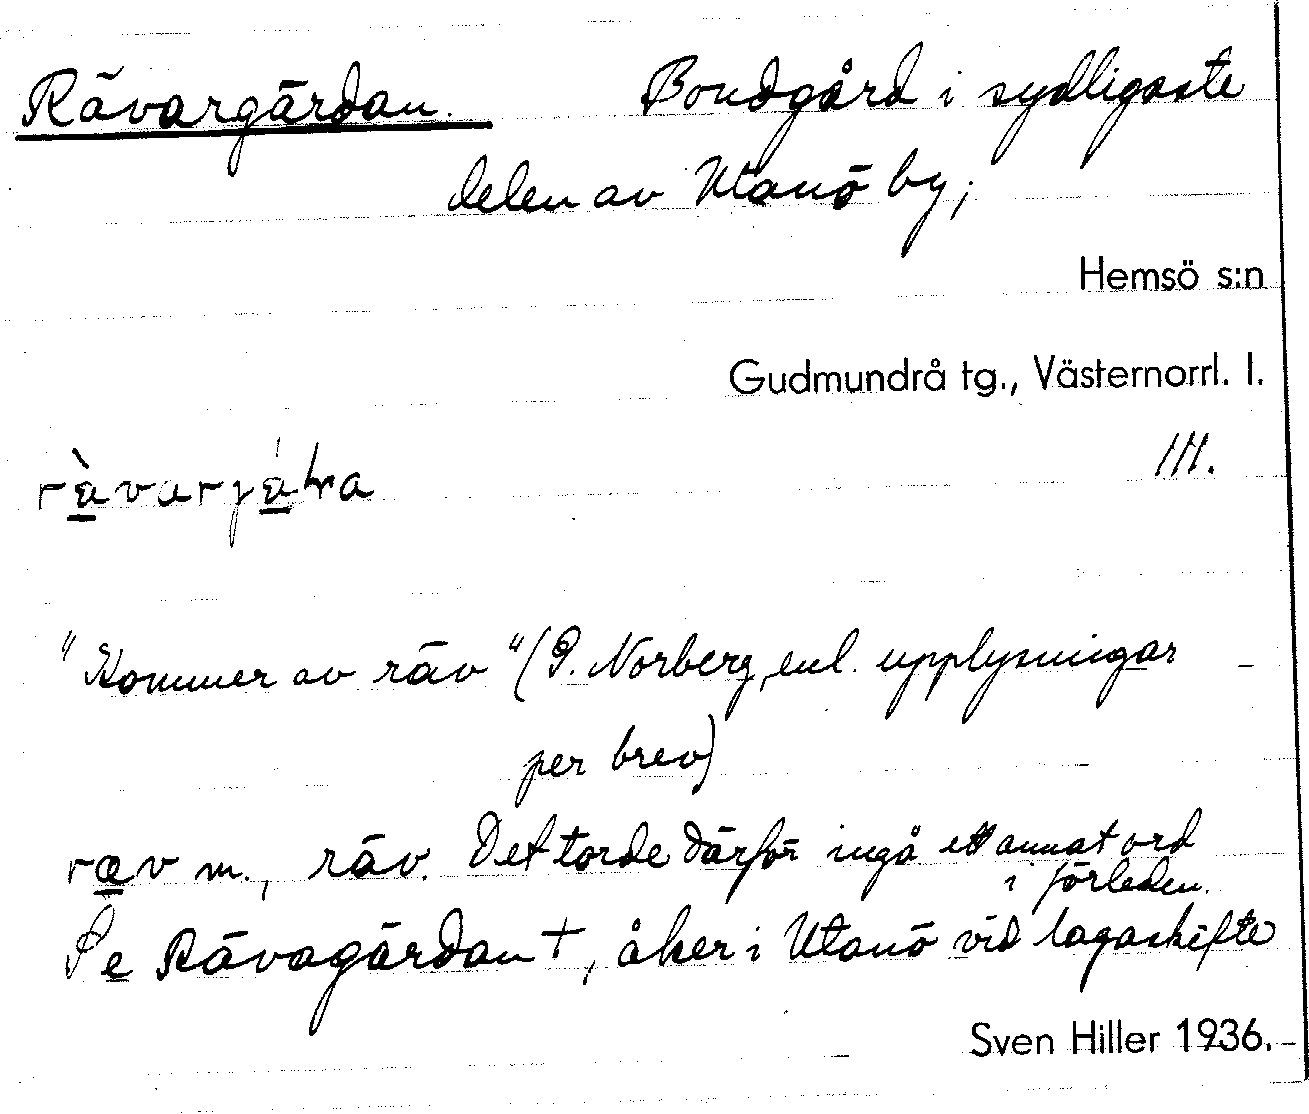 Rävargärdan. Bondgård i sydligaste
delen av Utanö by;
Hemsö s:n
Gudmundrå tg., Västernorrl. l.
III.
"Kommer av räv" (P. Norberg enl. upplysningar
per brev)
ræv m., räv. Det torde därför ingå ett annat ord
i förleden.
Se Rävagärdan +, åker i Utanö vid lagaskifte
Sven Hiller 1936.